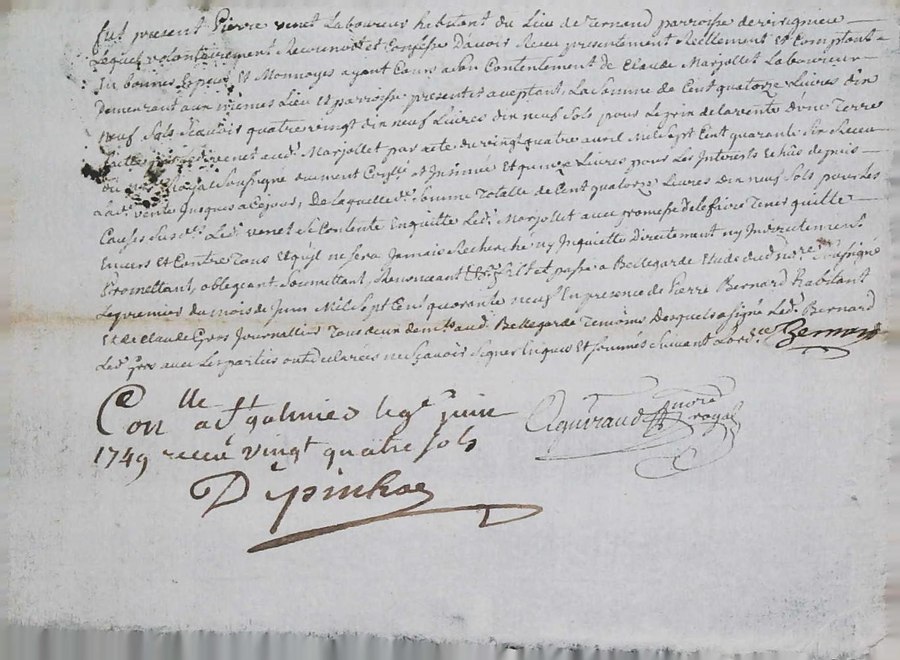 fut present Pierre venet Laboureur habitant du Lieu de Ternand parroisse de
Lequel volontairement Reconnoit et Confesse D'avoir Receu presentement Reellement et Comptant
En bonnes Especes Et Monnoyes ayant Cours a son Contentement de Claude Marjollet Laboureur
Demeurant aux mêmes Lieu et parroisse present et aceptant La Somme de Cent quatorze Livres Dix
neuf sols Scavoir quatre vingt dix neuf Livres dix neuf Sols pour Le prix de la vente d'une Terre
faitte par Led. venet aud. Marjollet par acte du vingt quatre avril mil sept Cent quarante six Receu
du no.re Royal Soussigné duement et Insinué Et quinze Livres pour Les Interests Echûs depuis
Lad. vente Jusques a Ce jour, De laquelle d. Somme Totalle de Cent quatorze Livres Dix neuf Sols pour Les
Causes Sus d. Led. venet Se Contente En quitte Led. Marjollet avec promesse de le faire Tenir quitte
Envers Et Contre Tous Et qu'il ne Sera Jamais Recherché ny Inquietté directement ny Indirectement
Promettant, obligeant Soumettant, Renonceant fait et passé a Bellegarde Etude du d. no.re Soussigné
Le premier du mois de Juin Mil Sept Cent quarante neuf En presence de Pierre Bernard Habitant
Et de Claude Gros Journallier Tous deux demt aud. Bellegarde Temoins Desquels a Signé Led. Bernard
Led. Gros avec Les parties ont declarés ne Scavoir Signer Enquis Et Sommés Suivant L'ord.ce Bernard
Con.lle a St galmier le 9e juin
1749 receu vingt quatre sols
Aguiraud no.re royal
Depinhac